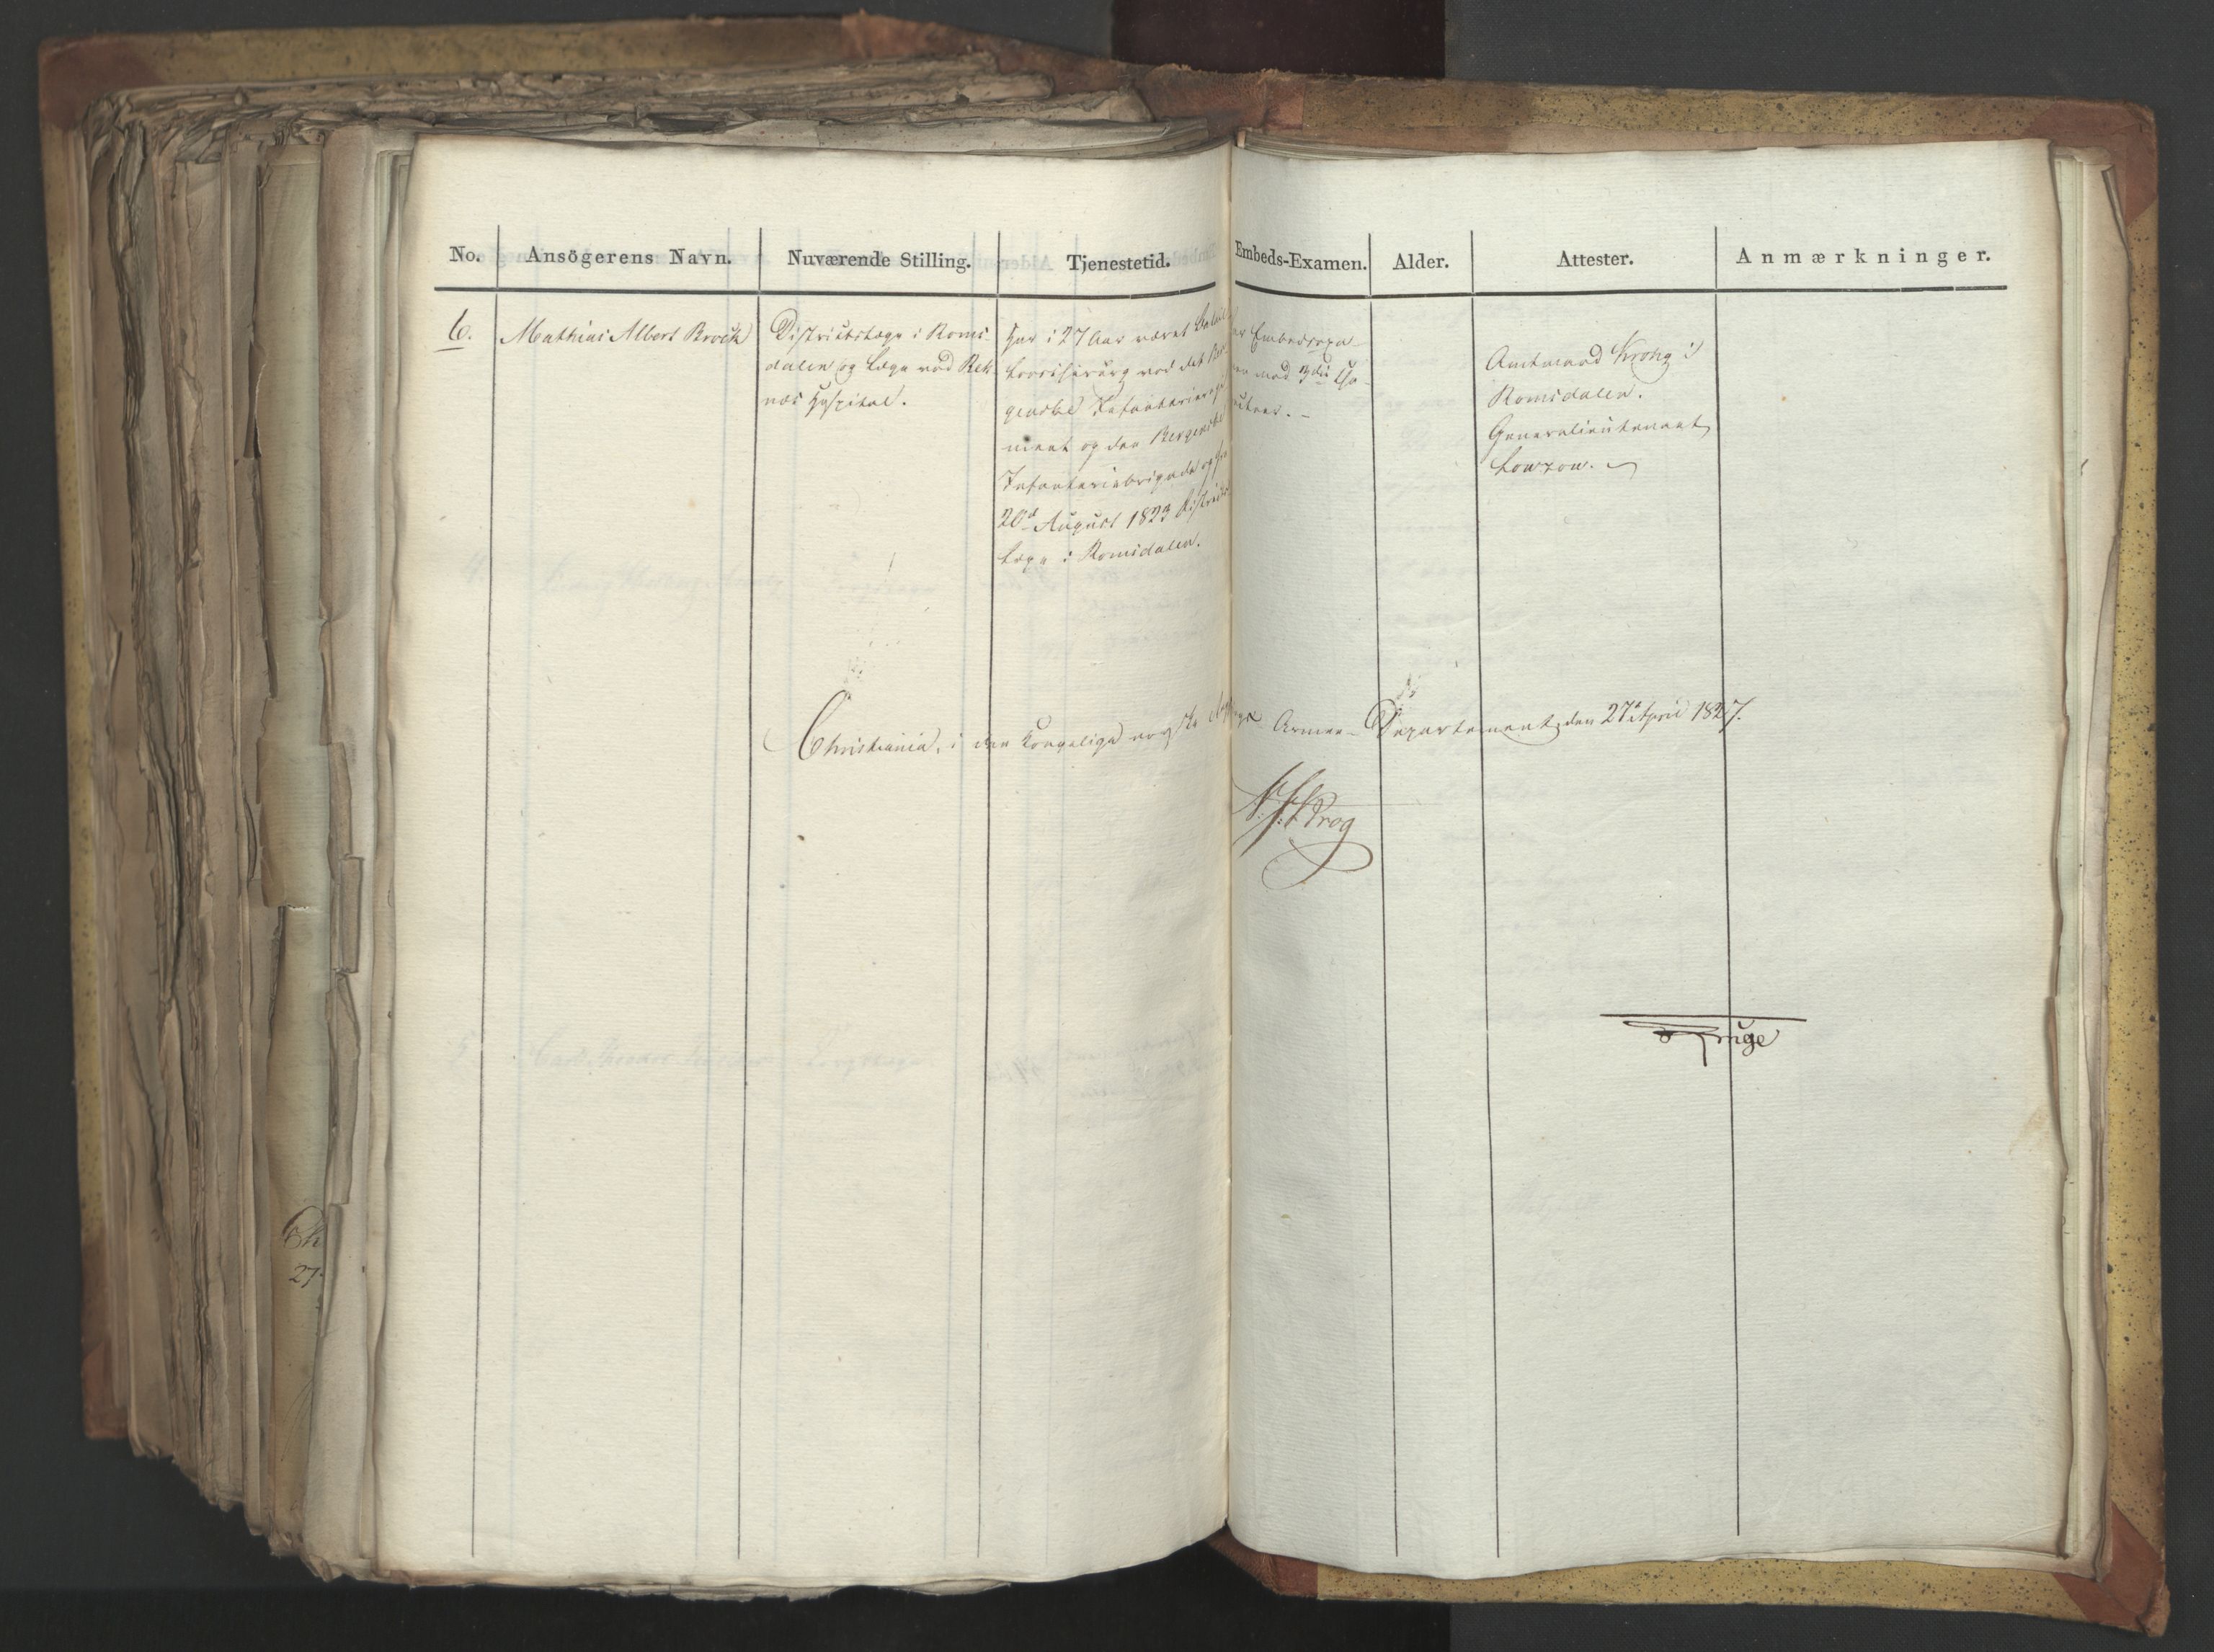 No. Ansögerens Navn. Nuværende Stilling. Tjenestetid. Embeds-Examen. Alder. Attester. Anmærkninger.
6.
Mathias Albert Broch
Districtslæge i Roms-
dalen og Læge ved Rek-
næs Hospital.
Har i 27 Aar været
ved det Ber-
genske Infanterierege-
ment og den Bergenske
Infanteriebrigade og
20de August 1823 Districts-
læge i Romsdalen.
Embedsexa-
med 3die Cha-
Amtmand Krohg i
Romsdalen.
Generallieutenant
Lowzow.
Christiania, i den Kongelige norske Armee-Departement, den 27de April 1827.
Ch
27